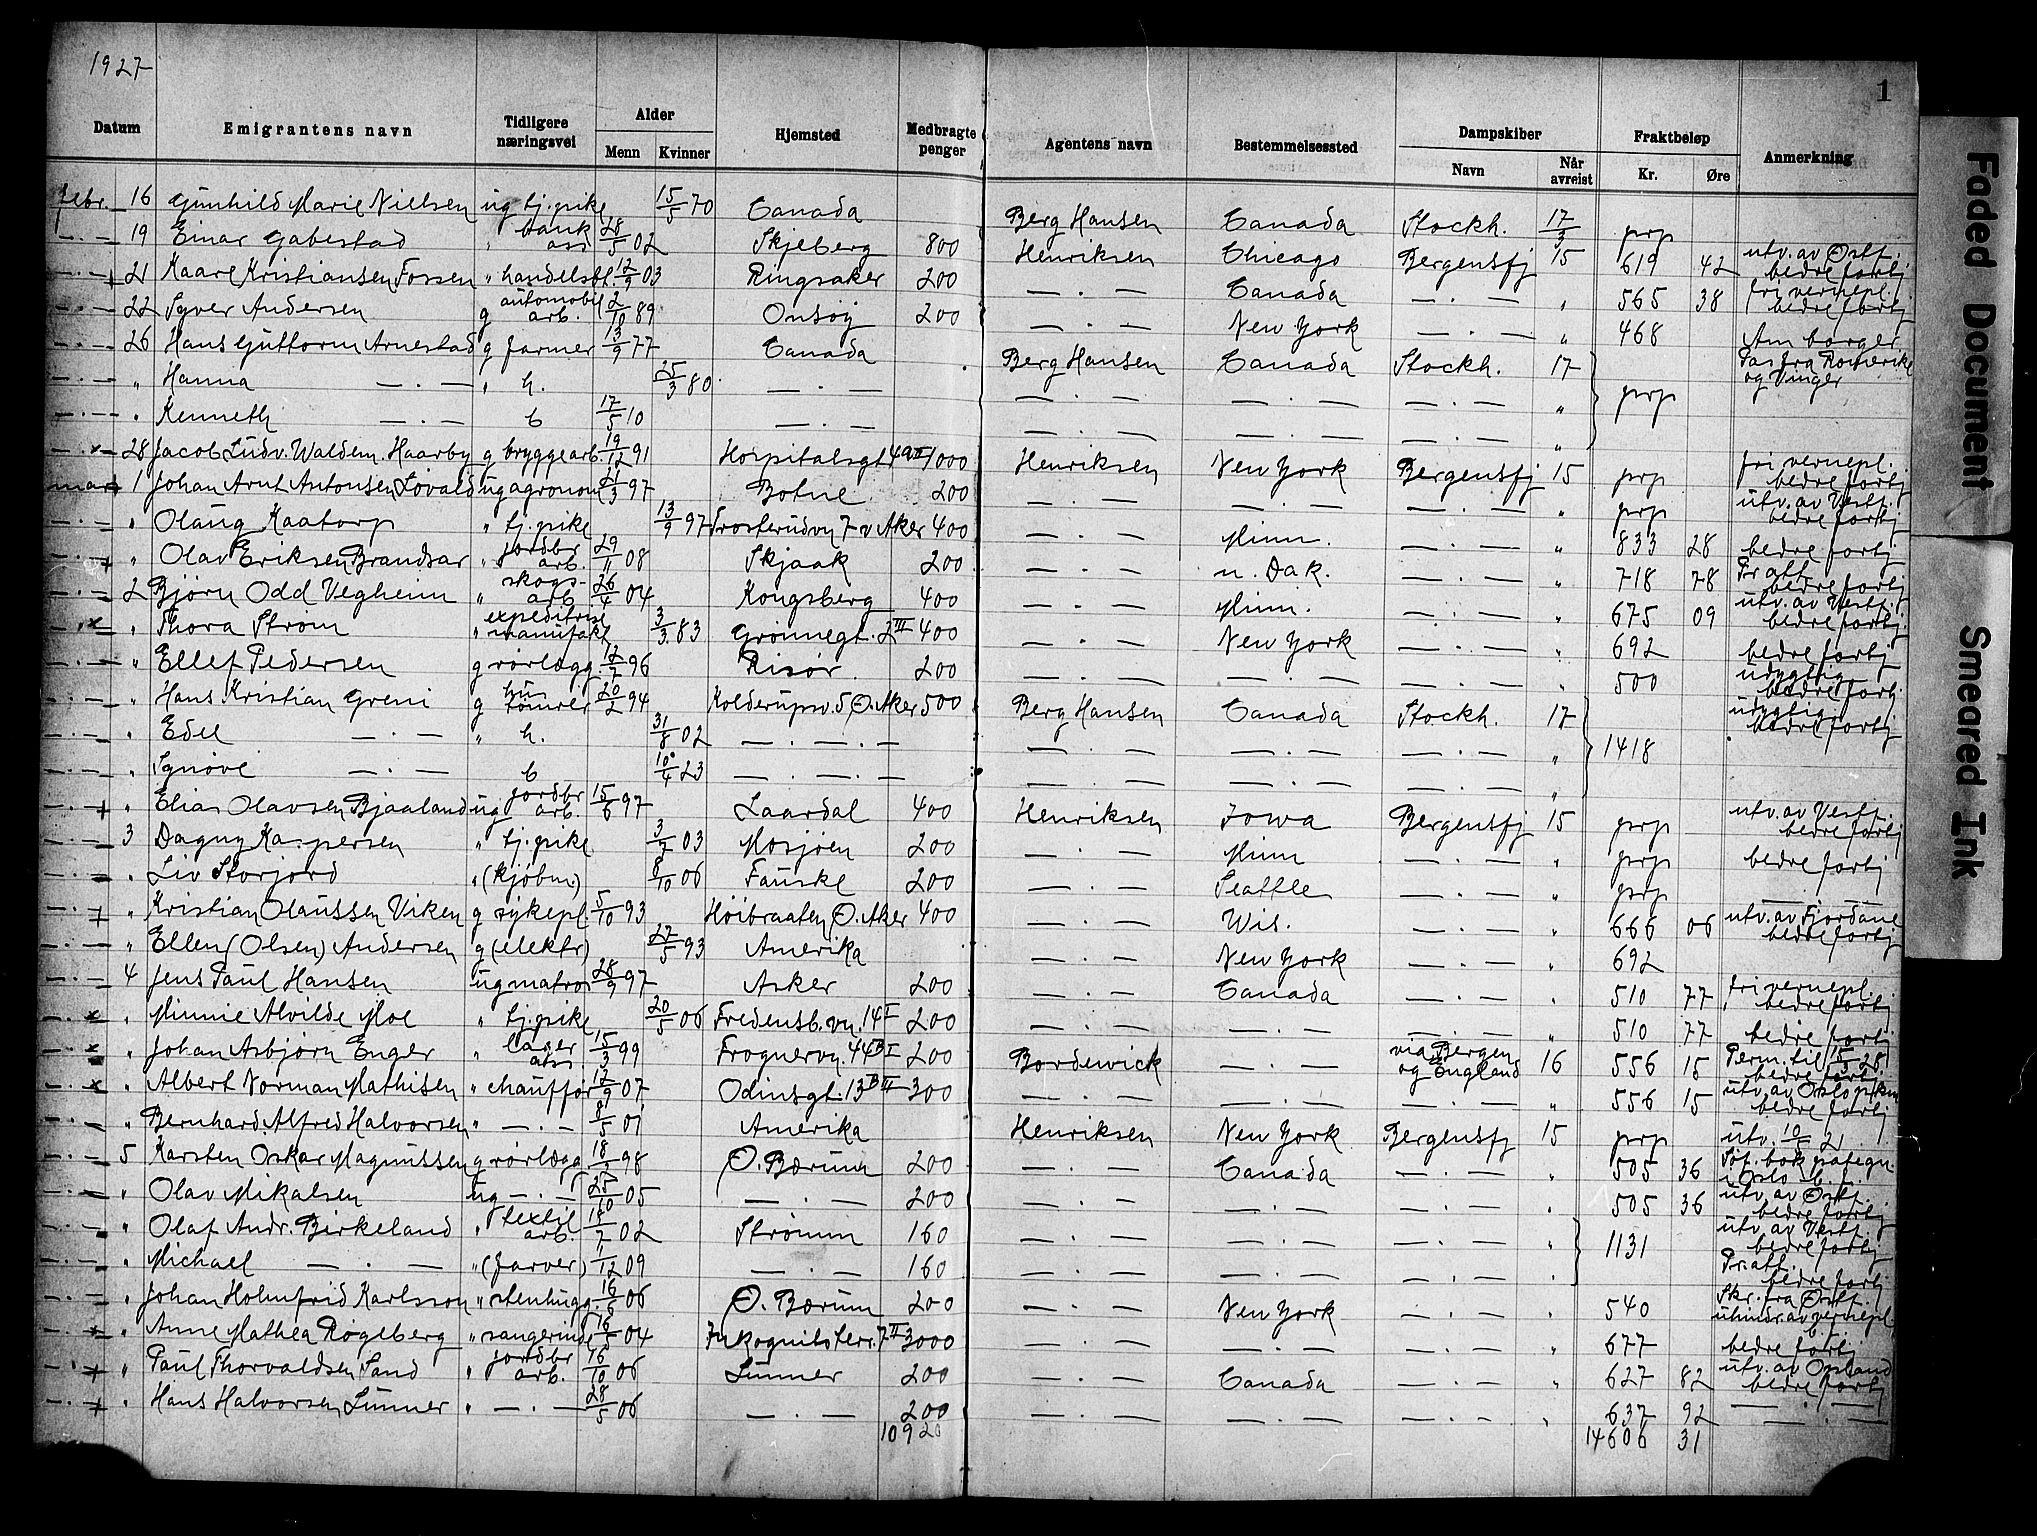 1927
1
Datum | Emigrantens navn | Tidligere næringsvei | Alder Menn | Kvinner | Hjemsted | Medbragte penger | Agentens navn | Bestemmelsessted | Dampskiber Navn | Når avreist | Fraktbeløp Kr. | Øre | Anmerkning
Febr. 16 Gunhild Marie Nielsen ug tj.pike 15/5 70 Canada Berg Hansen Canada Stockh. 17/3 prp
—·— 19 Einar Gabestad " bank ass 28/5 02 Skjeberg 800 Henriksen Chicago Bergensfj 15 619 42 utv. av Østf. bedre fortj
—·— 21 Kaare Kristiansen Fossen " handelsbt. 12/9 03 Ringsaker 200 —·— Canada —·— " 565 38 fri vernepl. bedre fortj
—·— 22 Syver Andersen g automobil arb. 2/10 89 Onsøy 200 —·— New York —·— " 468 Am borger
—·— 26 Hans Guttorm Arnestad g farmer 13/9 77 Canada Berg Hansen Canada Stockh. 17 Pas fra Romerike og Vinger
—·— " Hanna —·— " h. 25/3 80 —·— —·— —·— —·— " prp
—·— " Kenneth —·— b 17/5 10 —·— —·— —·— —·— "
—·× 28 Jacob Ludv. Waldem. Haarby g bryggearb. 19/12 91 Hospitalsgt 49 II 1000 Henriksen New York Bergensfj 15 prp fri vernepl. bedre fortj
mars 1 Johan Arnt Antonsen Løvald ug agronom 21/3 97 Botne 200 —·— —·— —·— " prp utv. av Vestf. bedre fortj
—·— " Olaug Kaatorp " tj.pike 13/9 97 Frosterudvn 7 v Aker 400 —·— Minn. —·— " 833 28 bedre fortj
—·— " Olav Eriksen Brandsar " jordbr arb. 29/11 08 Skjaak 200 —·— n. Dak. —·— " 718 78 Pr att bedre fortj
—·— 2 Bjørn Odd Vegheim " skogs- arb 26/4 04 Kongsberg 400 —·— Minn. —·— " 675 09 utv. av Vestf. bedre fortj.
—·× " Thora Strøm " expeditrise manufakt 3/3 83 Grønnegt. 2 III 400 —·— New York —·— " 692 bedre fortj
—·— " Ellef Pedersen g rørlægg 12/7 96 Risør 200 —·— —·— —·— " 500 udygtig bedre fortj.
—·— " Hans Kristian Greni g hus tømrer 20/2 94 Kolderupsv. 5 Ø. Aker 500 Berg Hansen Canada Stockh. 17 udygtig bedre fortj
—·— " Edel —·— " h. 31/8 02 —·—·— —·— —·— —·— " 1418
—·— " Synøve —·— b 10/4 23 —·—·— —·— —·— —·— "
—·— " Elias Olavsen Bjaaland ug jordbr arb. 15/6 97 Laardal 400 Henriksen Iowa Bergensfj 15 prp utv. av Vestf. bedre fortj
—·— 3 Dagny Kaspersen " tj.pike 3/7 03 Mosjøen 200 —·— Minn —·— " prp bedre fortj
—·— " Liv Storjord " (kjøbm.) 8/10 06 Fauske 200 —·— Seattle —·— " prp —·—
—·— " Kristian Olaussen Viken g sykepl. 5/10 93 Høibraaten Ø. Aker 400 —·— Wis. —·— " 666 06 utv. av Fjordane bedre fortj
—·— " Ellen (Olsen) Andersen g (elektr) 27/5 93 Amerika —·— New York —·— " 692
—·— 4 Jens Paul Hansen ug matros 28/9 97 Asker 200 —·— Canada —·— " 510 77 fri vernepl. bedre fortj
—·× " Minnie Alvilde Moe " tj.pike 20/5 06 Fredensb.vn. 14 I 200 —·— —·— —·— " 510 77 bedre fortj
—·× " Johan Asbjørn Enger " lager ass 15/3 99 Frognervn. 44 B I 200 Bordewick —·— via Bergen og England 16 556 15 Perm. til 15/5 28 bedre fortj
—·× " Albert Norman Mathisen " chauffør 12/9 07 Odinsgt. 13 B III 300 —·— —·— —·— " 556 15 utv. av Oslo p.kam bedre fortj
—·— " Bernhard Alfred Halvorsen " —·— 8/5 01 Amerika Henriksen New York Bergensfj 15 prp utv. 10/5 21
—·— 5 Karsten Oskar Magnussen g rørlægg 18/2 98 Ø. Bærum 200 —·— Canada —·— " 505 36 Søf. bok pategn i Oslo
—·— " Olav Mikalsen ug —·— 25/10 05 —·— 200 —·— —·— —·— " 505 36 utv. av Østf. bedre fortj
—·— " Olaf Andr. Birkeland " textil arb. 02 Strømm 160 —·— —·— —·— " 1131 utv. av Vestf. bedre fortj
—·— " Michael —·— " (farver) 11/12 09 —·— 160 —·— —·— —·— " Pr. att. bedre fortj
—·— " Johan Holmfrid Karlsson " stenhugg. 16/6 06 Ø. Bærum 200 —·— New York —·— " 540 Skr. fra Østf. uhindr. av vernepl.
—·× " Anne Mathea Røgeberg " sangerinde 04 Inkognito terr. 7 II 3000 —·— —·— —·— " 677 bedre fortj
—·— " Paul Thorvaldsen Sand " jordbr arb. 16/10 06 Lunner 200 —·— Canada —·— " 627 82 utv. av Opland bedre fortj
—·— " Hans Halvorsen Lunner " —·— 28/5 06 —·— 200 —·— —·— —·— " 637 92 —·—
10920 14606 31
Faded Document
Smeared Ink